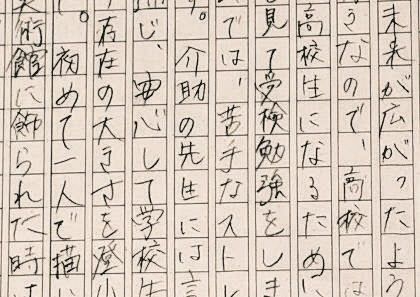 未来が広がったよう
うなので、高校では
高校生になるために
見て受検勉強をしま
では、苦手なストレ
す。介助の先生には
じ、安心して学校生
存在の大きさを
。初めて一人で描い
術館に飾られた時は